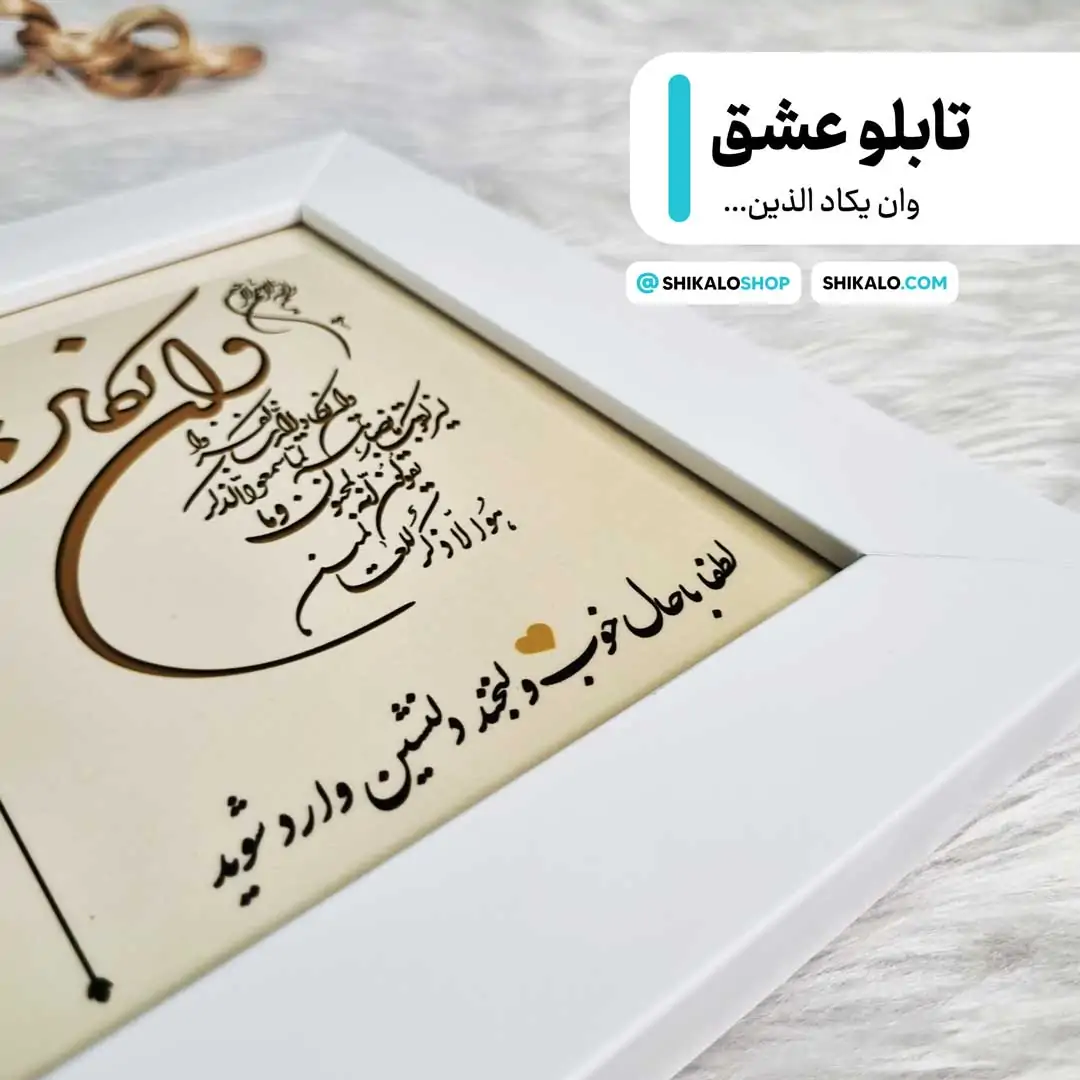 تابلو عشق
وان یکاد الذین...
@SHIKALOSHOP
SHIKALO.COM
وان یکاد الذین کفروا
لیزلقونک بابصارهم لما سمعوا الذکر
و یقولون انه لمجنون وما
هو الا ذکر للعالمین
لطفا با حال خوب و لبخند دلنشین وارد شوید